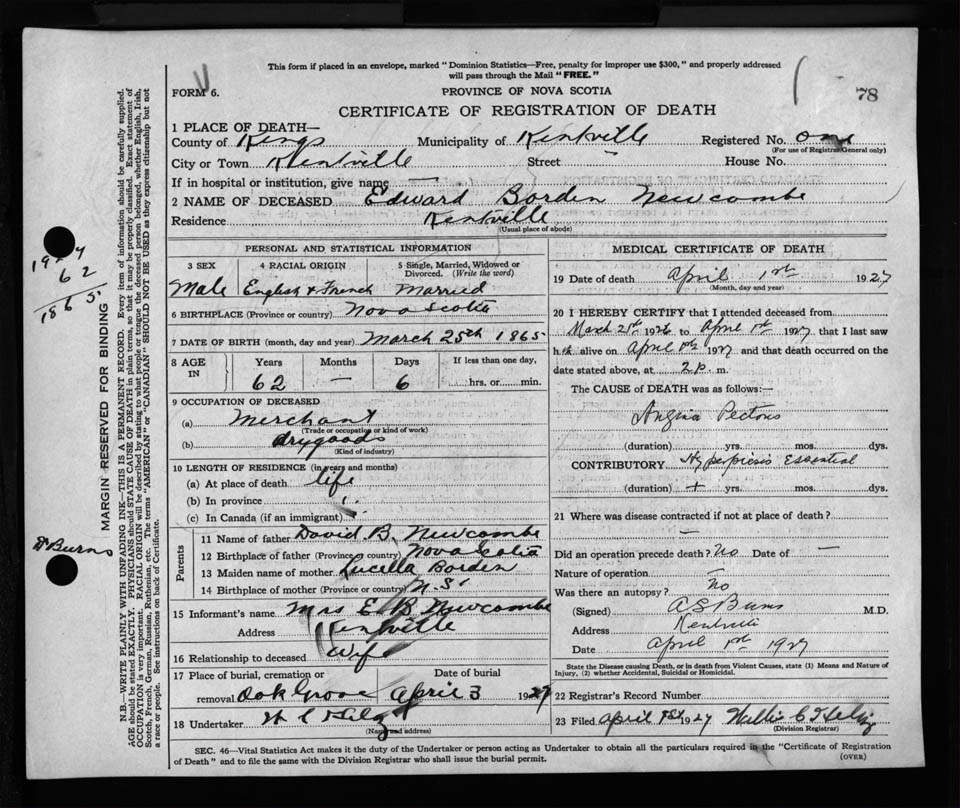 This form if placed in an envelope, marked "Dominion Statistics—Free, penalty for improper use $300," and properly addressed
will pass through the Mail "FREE."
FORM 6.
PROVINCE OF NOVA SCOTIA
78
CERTIFICATE OF REGISTRATION OF DEATH
1 PLACE OF DEATH—
County of Kings Municipality of Kentville Registered No. one
(For use of Registrar General only)
City or Town Kentville Street — House No.
If in hospital or institution, give name —
2 NAME OF DECEASED Edward Borden Newcombe
Residence Kentville
(Usual place of abode)
PERSONAL AND STATISTICAL INFORMATION
3 SEX 4 RACIAL ORIGIN 5 Single, Married, Widowed or
Divorced. (Write the word)
Male English & French Married
6 BIRTHPLACE (Province or country) Nova Scotia
7 DATE OF BIRTH (month, day and year) March 25th 1865
8 AGE IN Years Months Days If less than one day,
62 — 6 hrs. or min.
9 OCCUPATION OF DECEASED
(a) Merchant
(Trade or occupation or kind of work)
(b) drygoods
(Kind of industry)
10 LENGTH OF RESIDENCE (in years and months)
(a) At place of death life
(b) In province "
(c) In Canada (if an immigrant) "
Parents
11 Name of father David B. Newcombe
12 Birthplace of father (Province or country) Nova Scotia
13 Maiden name of mother Lucella Borden
14 Birthplace of mother (Province or country) N.S.
15 Informant's name Mrs E. B. Newcombe
Address Kentville
16 Relationship to deceased Wife
17 Place of burial, cremation or Date of burial
removal Oak Grove April 3 1927
18 Undertaker
(Name and address)
MEDICAL CERTIFICATE OF DEATH
19 Date of death April 1st 1927
(Month, day and year)
20 I HEREBY CERTIFY that I attended deceased from
March 21st 1926 to April 1st 1927 that I last saw
him alive on April 1st 1927 and that death occurred on the
date stated above, at 2 p. m.
The CAUSE OF DEATH was as follows:—
Angina Pectoris
(duration) yrs. mos. dys.
CONTRIBUTORY Hyperpiesis Essential
(duration) + yrs. mos. dys.
21 Where was disease contracted if not at place of death?
—
Did an operation precede death? No Date of —
Nature of operation —
Was there an autopsy? No
(Signed) A S Burns M.D.
Address Kentville
Date April 1st 1927
State the Disease causing Death, or in death from Violent Causes, state (1) Means and Nature of
Injury, (2) whether Accidental, Suicidal or Homicidal.
22 Registrar's Record Number
23 Filed April 1st 1927 Willis C
(Division Registrar)
SEC. 46—Vital Statistics Act makes it the duty of the Undertaker or person acting as Undertaker to obtain all the particulars required in the "Certificate of Registration
of Death" and to file the same with the Division Registrar who shall issue the burial permit.
(OVER)
62
1865
Dr Burns
MARGIN RESERVED FOR BINDING
N.B.—WRITE PLAINLY WITH UNFADING INK—THIS IS A PERMANENT RECORD. Every item of information should be carefully supplied.
AGE should be stated EXACTLY. PHYSICIANS should STATE CAUSE OF DEATH in plain terms, so that it may be properly classified. Exact statement of
OCCUPATION is very important. RACIAL ORIGIN will be described by stating to what people or tongue the deceased person belonged, whether English, Irish,
Scotch, French, German, Russian, Ruthenian, etc. The terms "AMERICAN" or "CANADIAN" SHOULD NOT BE USED as they express citizenship but not
a race or people. See instructions on back of Certificate.